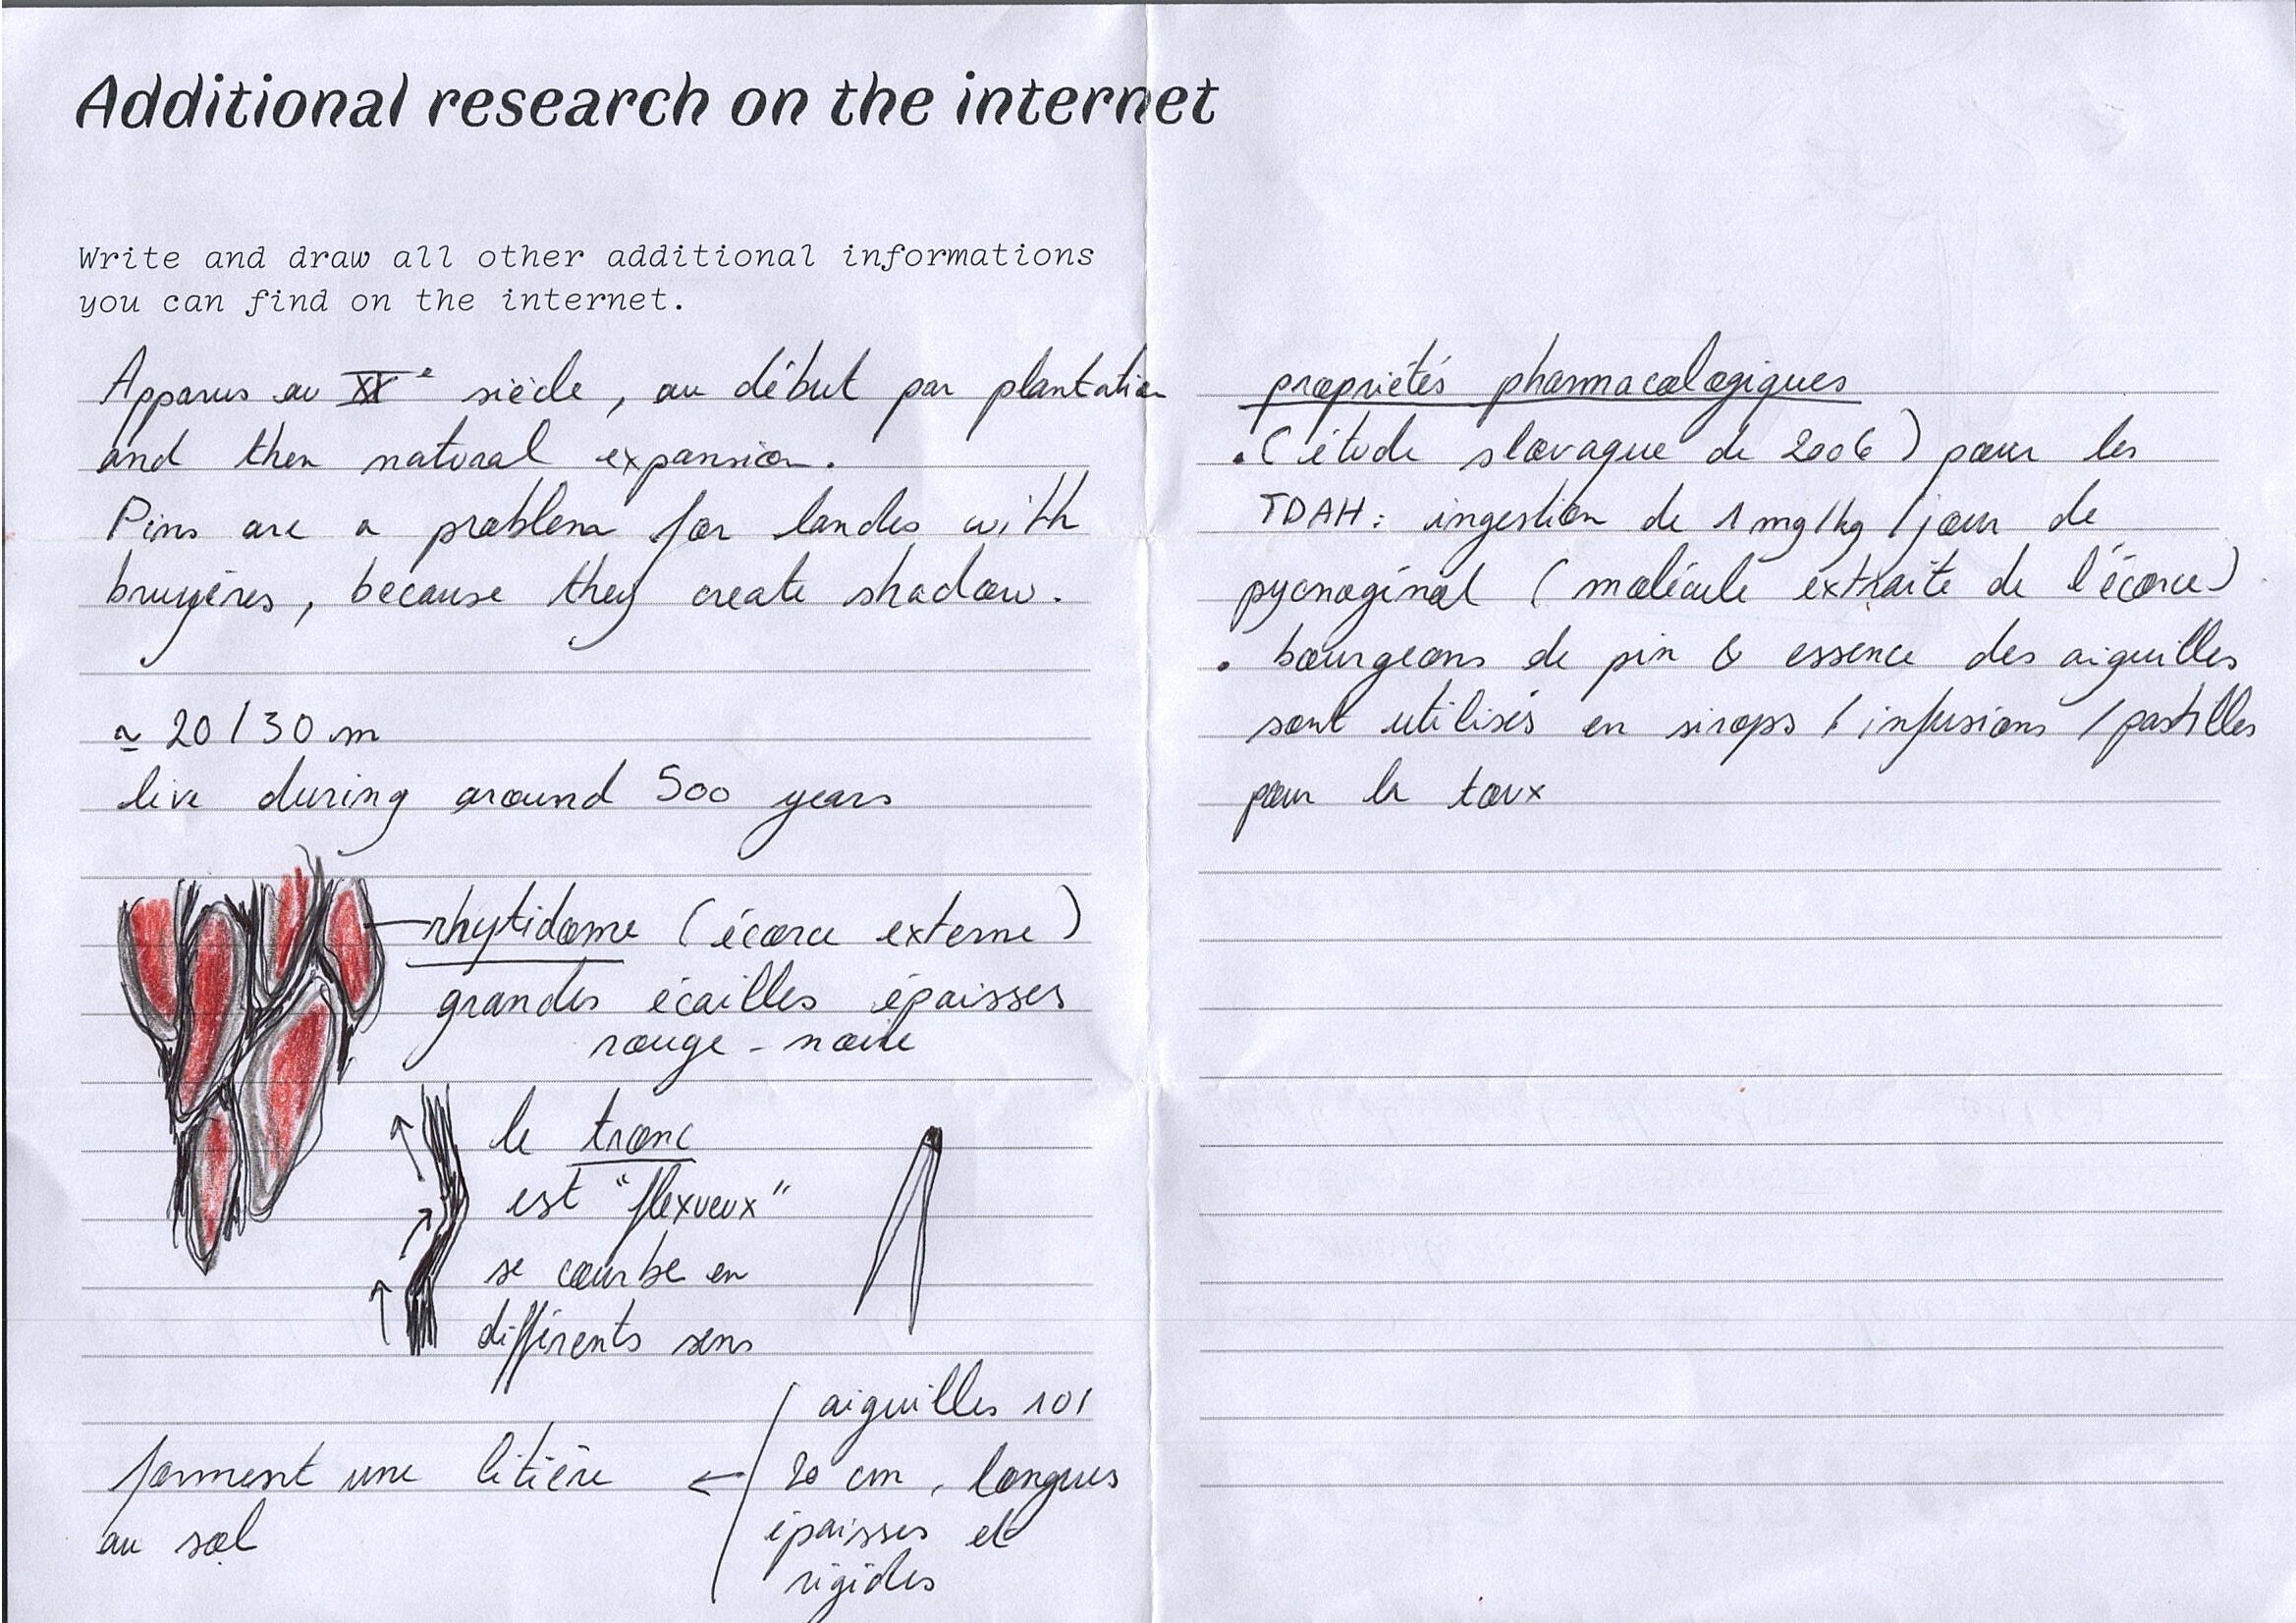 Additional research on the internet
Write and draw all other additional informations
you can find on the internet.
Apparus au XXe siècle, au début par plantation
and then natural expansion.
Pins are a problem for landes with
bruyères, because they create shadow.
≃ 20/30 m
live during around 500 years
rhytidome (écorce externe)
grandes écailles épaisses
rouge - noire
le tronc
est "flexueux"
se courbe en
différents sens
aiguilles 10/
20 cm, longues
épaisses et
rigides
forment une litière ←
au sol
propriétés pharmacologiques
• (étude slovaque de 2006) pour les
TDAH : ingestion de 1 mg/kg/jour de
pycnogénol (molécule extraite de l'écorce)
• bourgeons de pin & essence des aiguilles
sont utilisés en sirops / infusions / pastilles
pour la toux